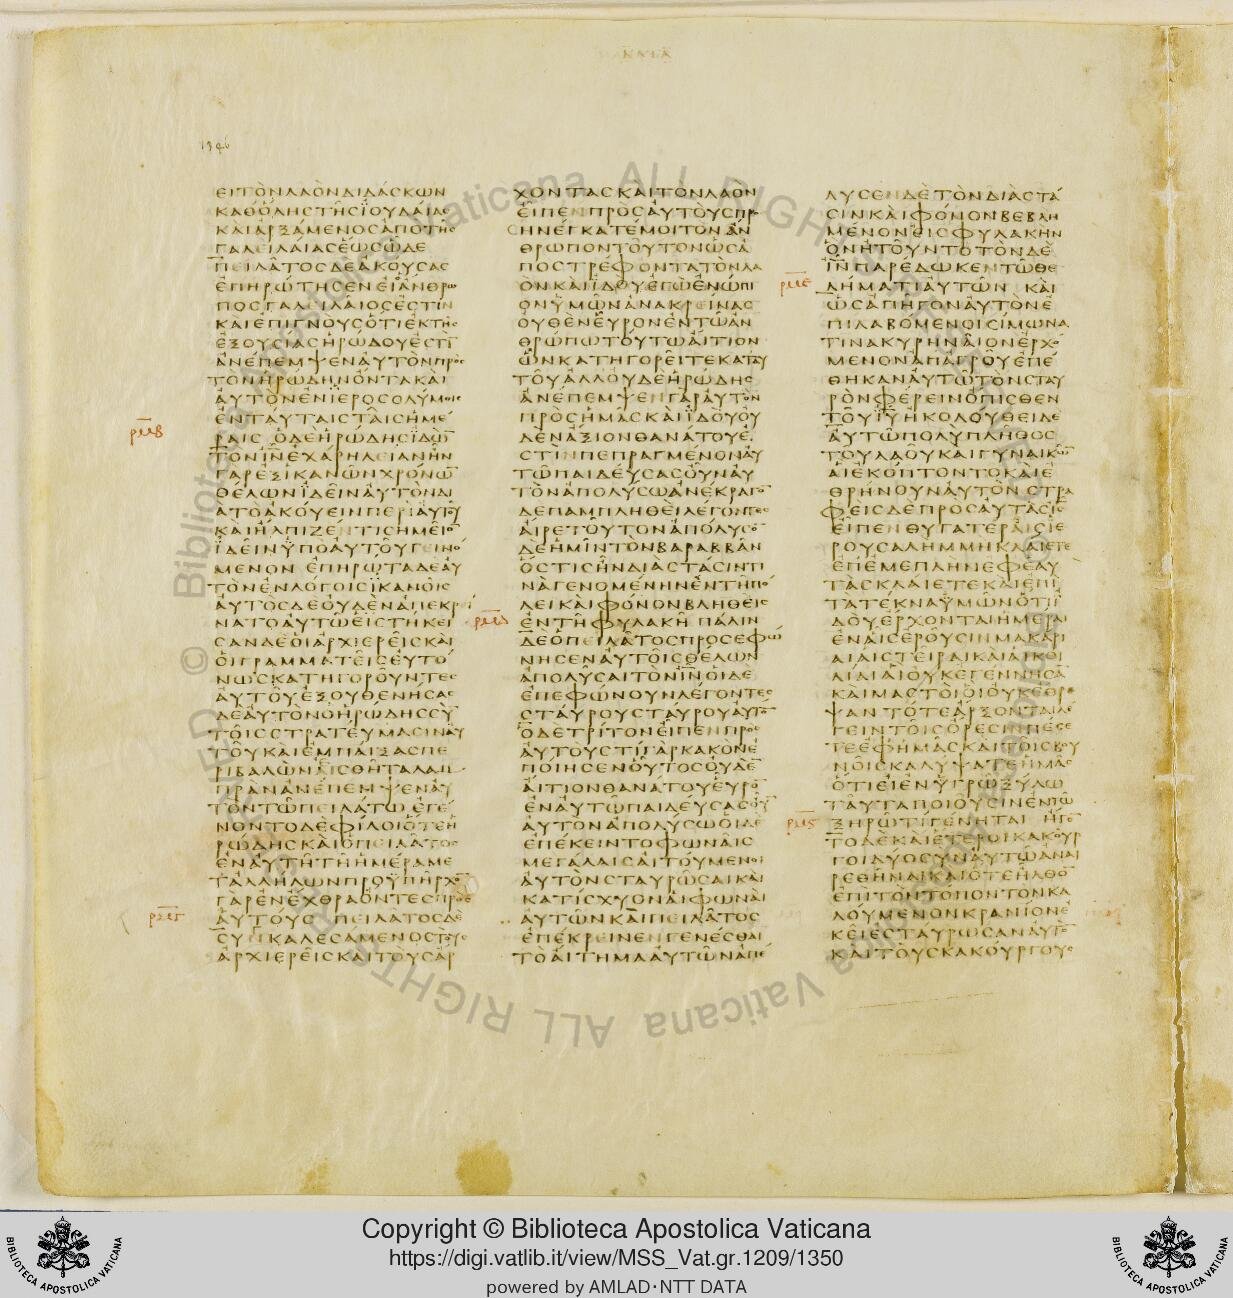 ΚΑΤΑ
1346
ΕΙ ΤΟΝ ΛΑΟΝ ΔΙΔΑΣΚΩΝ
ΚΑΘ ΟΛΗΣ ΤΗΣ ΙΟΥΔΑΙΑΣ
ΚΑΙ ΑΡΞΑΜΕΝΟΣ ΑΠΟ ΤΗΣ
ΓΑΛΕΙΛΑΙΑΣ ΕΩΣ ΩΔΕ
ΠΕΙΛΑΤΟΣ ΔΕ ΑΚΟΥΣΑΣ
ΕΠΗΡΩΤΗΣΕΝ ΕΙ ΑΝΘΡΩ
ΠΟΣ ΓΑΛΕΙΛΑΙΟΣ ΕΣΤΙΝ
ΚΑΙ ΕΠΙΓΝΟΥΣ ΟΤΙ ΕΚ ΤΗΣ
ΕΞΟΥΣΙΑΣ ΗΡΩΔΟΥ ΕΣΤΙ̅
ΑΝΕΠΕΜΨΕΝ ΑΥΤΟΝ ΠΡΟΣ
ΤΟΝ ΗΡΩΔΗΝ ΟΝΤΑ ΚΑΙ
ΑΥΤΟΝ ΕΝ ΙΕΡΟΣΟΛΥΜΟΙΣ
ΕΝ ΤΑΥΤΑΙΣ ΤΑΙΣ ΗΜΕ
ΡΑΙΣ Ο ΔΕ ΗΡΩΔΗΣ ΙΔΩ̅
ΤΟΝ Ι̅Ν̅ ΕΧΑΡΗ ΛΕΙΑΝ ΗΝ
ΓΑΡ ΕΞ ΙΚΑΝΩΝ ΧΡΟΝΩ̅
ΘΕΛΩΝ ΙΔΕΙΝ ΑΥΤΟΝ ΔΙ
Α ΤΟ ΑΚΟΥΕΙΝ ΠΕΡΙ ΑΥΤΟΥ
ΚΑΙ ΗΛΠΙΖΕΝ ΤΙ ΣΗΜΕΙΟ̅
ΙΔΕΙΝ ΥΠΟ ΑΥΤΟΥ ΓΕΙΝΟ
ΜΕΝΟΝ ΕΠΗΡΩΤΑ ΔΕ ΑΥ
ΤΟΝ ΕΝ ΛΟΓΟΙΣ ΙΚΑΝΟΙΣ
ΑΥΤΟΣ ΔΕ ΟΥΔΕΝ ΑΠΕΚΡΙ
ΝΑΤΟ ΑΥΤΩ ΕΙΣΤΗΚΕΙ
ΣΑΝ ΔΕ ΟΙ ΑΡΧΙΕΡΕΙΣ ΚΑΙ
ΟΙ ΓΡΑΜΜΑΤΕΙΣ ΕΥΤΟ
ΝΩΣ ΚΑΤΗΓΟΡΟΥΝΤΕΣ
ΑΥΤΟΥ ΕΞΟΥΘΕΝΗΣΑΣ
ΔΕ ΑΥΤΟΝ Ο ΗΡΩΔΗΣ ΣΥ̅
ΤΟΙΣ ΣΤΡΑΤΕΥΜΑΣΙΝ ΑΥ
ΤΟΥ ΚΑΙ ΕΜΠΑΙΞΑΣ ΠΕ
ΡΙΒΑΛΩΝ ΑΙΣΘΗΤΑ ΛΑΜ
ΠΡΑΝ ΑΝΕΠΕΜΨΕΝ ΑΥ
ΤΟΝ ΤΩ ΠΕΙΛΑΤΩ ΕΓΕ
ΝΟΝΤΟ ΔΕ ΦΙΛΟΙ Ο ΤΕ Η
ΡΩΔΗΣ ΚΑΙ Ο ΠΕΙΛΑΤΟΣ
ΕΝ ΑΥΤΗ ΤΗ ΗΜΕΡΑ ΜΕ
Τ ΑΛΛΗΛΩΝ ΠΡΟΥΠΗΡΧΟ̅
ΓΑΡ ΕΝ ΕΧΘΡΑ ΟΝΤΕΣ ΠΡΟΣ
ΑΥΤΟΥΣ ΠΕΙΛΑΤΟΣ ΔΕ
ΣΥΝΚΑΛΕΣΑΜΕΝΟΣ ΤΟΥΣ
ΑΡΧΙΕΡΕΙΣ ΚΑΙ ΤΟΥΣ ΑΡ
ΧΟΝΤΑΣ ΚΑΙ ΤΟΝ ΛΑΟΝ
ΕΙΠΕΝ ΠΡΟΣ ΑΥΤΟΥΣ ΠΡΟ
ΗΝΕΓΚΑΤΕ ΜΟΙ ΤΟΝ ΑΝ
ΘΡΩΠΟΝ ΤΟΥΤΟΝ ΩΣ Α
ΠΟΣΤΡΕΦΟΝΤΑ ΤΟΝ ΛΑ
ΟΝ ΚΑΙ ΙΔΟΥ ΕΓΩ ΕΝΩΠΙ
ΟΝ ΥΜΩΝ ΑΝΑΚΡΕΙΝΑΣ
ΟΥΘΕΝ ΕΥΡΟΝ ΕΝ ΤΩ ΑΝ
ΘΡΩΠΩ ΤΟΥΤΩ ΑΙΤΙΟΝ
ΩΝ ΚΑΤΗΓΟΡΕΙΤΕ ΚΑΤ ΑΥ
ΤΟΥ ΑΛΛ ΟΥΔΕ ΗΡΩΔΗΣ
ΑΝΕΠΕΜΨΕΝ ΓΑΡ ΑΥΤΟΝ
ΠΡΟΣ ΗΜΑΣ ΚΑΙ ΙΔΟΥ ΟΥ
ΔΕΝ ΑΞΙΟΝ ΘΑΝΑΤΟΥ Ε
ΣΤΙΝ ΠΕΠΡΑΓΜΕΝΟΝ ΑΥ
ΤΩ ΠΑΙΔΕΥΣΑΣ ΟΥΝ ΑΥ
ΤΟΝ ΑΠΟΛΥΣΩ ΑΝΕΚΡΑΓΟ̅
ΔΕ ΠΑΜΠΛΗΘΕΙ ΛΕΓΟΝΤΕΣ
ΑΙΡΕ ΤΟΥΤΟΝ ΑΠΟΛΥΣΟ̅
ΔΕ ΗΜΙΝ ΤΟΝ ΒΑΡΑΒΒΑΝ
ΟΣΤΙΣ ΗΝ ΔΙΑ ΣΤΑΣΙΝ ΤΙ
ΝΑ ΓΕΝΟΜΕΝΗΝ ΕΝ ΤΗ ΠΟ
ΛΕΙ ΚΑΙ ΦΟΝΟΝ ΒΛΗΘΕΙΣ
ΕΝ ΤΗ ΦΥΛΑΚΗ ΠΑΛΙΝ
ΔΕ Ο ΠΕΙΛΑΤΟΣ ΠΡΟΣΕΦΩ
ΝΗΣΕΝ ΑΥΤΟΙΣ ΘΕΛΩΝ
ΑΠΟΛΥΣΑΙ ΤΟΝ Ι̅Ν̅ ΟΙ ΔΕ
ΕΠΕΦΩΝΟΥΝ ΛΕΓΟΝΤΕΣ
ΣΤΑΥΡΟΥ ΣΤΑΥΡΟΥ ΑΥΤΟ̅
Ο ΔΕ ΤΡΙΤΟΝ ΕΙΠΕΝ ΠΡΟΣ
ΑΥΤΟΥΣ ΤΙ ΓΑΡ ΚΑΚΟΝ Ε
ΠΟΙΗΣΕΝ ΟΥΤΟΣ ΟΥΔΕ̅
ΑΙΤΙΟΝ ΘΑΝΑΤΟΥ ΕΥΡΟ̅
ΕΝ ΑΥΤΩ ΠΑΙΔΕΥΣΑΣ ΟΥ̅
ΑΥΤΟΝ ΑΠΟΛΥΣΩ ΟΙ ΔΕ
ΕΠΕΚΕΙΝΤΟ ΦΩΝΑΙΣ
ΜΕΓΑΛΑΙΣ ΑΙΤΟΥΜΕΝΟΙ
ΑΥΤΟΝ ΣΤΑΥΡΩΣΑΙ ΚΑΙ
ΚΑΤΙΣΧΥΟΝ ΑΙ ΦΩΝΑΙ
ΑΥΤΩΝ ΚΑΙ ΠΕΙΛΑΤΟΣ
ΕΠΕΚΡΕΙΝΕΝ ΓΕΝΕΣΘΑΙ
ΤΟ ΑΙΤΗΜΑ ΑΥΤΩΝ ΑΠΕ
ΛΥΣΕΝ ΔΕ ΤΟΝ ΔΙΑ ΣΤΑ
ΣΙΝ ΚΑΙ ΦΟΝΟΝ ΒΕΒΛΗ
ΜΕΝΟΝ ΕΙΣ ΦΥΛΑΚΗΝ
ΟΝ ΗΤΟΥΝΤΟ ΤΟΝ ΔΕ
Ι̅Ν̅ ΠΑΡΕΔΩΚΕΝ ΤΩ ΘΕ
ΛΗΜΑΤΙ ΑΥΤΩΝ ΚΑΙ
ΩΣ ΑΠΗΓΟΝ ΑΥΤΟΝ Ε
ΠΙΛΑΒΟΜΕΝΟΙ ΣΙΜΩΝΑ
ΤΙΝΑ ΚΥΡΗΝΑΙΟΝ ΕΡΧΟ
ΜΕΝΟΝ ΑΠ ΑΓΡΟΥ ΕΠΕ
ΘΗΚΑΝ ΑΥΤΩ ΤΟΝ ΣΤΑΥ
ΡΟΝ ΦΕΡΕΙΝ ΟΠΙΣΘΕΝ
ΤΟΥ Ι̅Υ̅ ΗΚΟΛΟΥΘΕΙ ΔΕ
ΑΥΤΩ ΠΟΛΥ ΠΛΗΘΟΣ
ΤΟΥ ΛΑΟΥ ΚΑΙ ΓΥΝΑΙΚΩ̅
ΑΙ ΕΚΟΠΤΟΝΤΟ ΚΑΙ Ε
ΘΡΗΝΟΥΝ ΑΥΤΟΝ ΣΤΡΑ
ΦΕΙΣ ΔΕ ΠΡΟΣ ΑΥΤΑΣ Ι̅Σ̅
ΕΙΠΕΝ ΘΥΓΑΤΕΡΕΣ ΙΕ
ΡΟΥΣΑΛΗΜ ΜΗ ΚΛΑΙΕΤΕ
ΕΠ ΕΜΕ ΠΛΗΝ ΕΦ ΕΑΥ
ΤΑΣ ΚΛΑΙΕΤΕ ΚΑΙ ΕΠΙ
ΤΑ ΤΕΚΝΑ ΥΜΩΝ ΟΤΙ Ι
ΔΟΥ ΕΡΧΟΝΤΑΙ ΗΜΕΡΑΙ
ΕΝ ΑΙΣ ΕΡΟΥΣΙΝ ΜΑΚΑΡΙ
ΑΙ ΑΙ ΣΤΕΙΡΑΙ ΚΑΙ ΑΙ ΚΟΙ
ΛΙΑΙ ΑΙ ΟΥΚ ΕΓΕΝΝΗΣΑ
ΚΑΙ ΜΑΣΤΟΙ ΟΙ ΟΥΚ ΕΘΡΕ
ΨΑΝ ΤΟΤΕ ΑΡΞΟΝΤΑΙ ΛΕ
ΓΕΙΝ ΤΟΙΣ ΟΡΕΣΙ ΠΕΣΕ
ΤΕ ΕΦ ΗΜΑΣ ΚΑΙ ΤΟΙΣ ΒΟΥ
ΝΟΙΣ ΚΑΛΥΨΑΤΕ ΗΜΑΣ
ΟΤΙ ΕΙ ΕΝ ΥΓΡΩ ΞΥΛΩ
ΤΑΥΤΑ ΠΟΙΟΥΣΙΝ ΕΝ ΤΩ
ΞΗΡΩ ΤΙ ΓΕΝΗΤΑΙ ΗΓΟ̅
ΤΟ ΔΕ ΚΑΙ ΕΤΕΡΟΙ ΚΑΚΟΥΡ
ΓΟΙ ΔΥΟ ΣΥΝ ΑΥΤΩ ΑΝΑΙ
ΡΕΘΗΝΑΙ ΚΑΙ ΟΤΕ ΗΛΘΟ̅
ΕΠΙ ΤΟΝ ΤΟΠΟΝ ΤΟΝ ΚΑ
ΛΟΥΜΕΝΟΝ ΚΡΑΝΙΟΝ Ε
ΚΕΙ ΕΣΤΑΥΡΩΣΑΝ ΑΥΤΟ̅
ΚΑΙ ΤΟΥΣ ΚΑΚΟΥΡΓΟΥΣ
Copyright © Biblioteca Apostolica Vaticana
https://digi.vatlib.it/view/MSS_Vat.gr.1209/1350
powered by AMLAD·NTT DATA